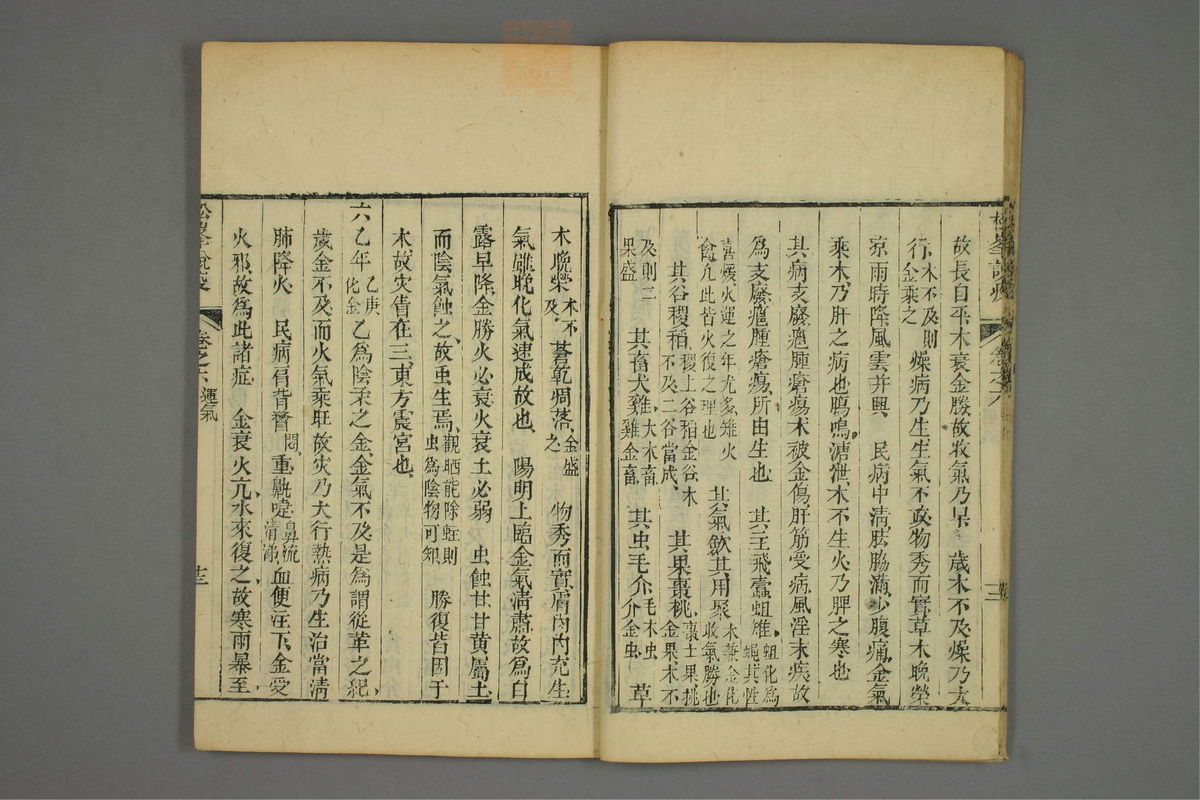 故長自平木衰金勝故收氣乃早 歲木不及燥乃大
行木不及則金乘之 燥病乃生生氣不政物秀而實草木晚榮
涼雨時降風雲并興 民病中清胠脇滿少腹痛金氣
乘木乃肝之病也腸鳴溏泄木不生火乃脾之寒也
其病支廢癰腫瘡瘍木被金傷肝筋受病風淫末疾故
為支廢癰腫瘡瘍所由生也 其主飛蠹蛆雉蛆化為蠅其性
喜煖火運之年尤多雉火禽凡此皆火復之理也 其氣歛其用聚木兼金化收氣勝也
其谷稷稻稷土谷稻金谷木不及二谷當成 其果棗桃棗土果桃金果木不
及則二果盛 其畜犬雞犬木畜雞金畜 其虫毛介毛木虫介金虫 草
木晚榮木不及 蒼乾凋落金盛之 物秀而實膚肉內充生
氣雖晚化氣速成故也 陽明上臨金氣清肅故為白
露早降金勝火必衰火衰土必弱 虫蝕甘甘黄屬土
而陰氣蝕之故虫生焉觀晒能除蛀則虫為陰物可知 勝復皆因于
木故灾眚在三東方震宮也
六乙年乙庚化金 乙為陰柔之金金氣不及是為謂從革之紀
歲金不及而火氣乘旺故灾乃大行熱病乃生治當清
肺降火 民病肩背瞀悶重鼽嚏鼻流清涕血便注下金受
火邪故為此諸症 金衰火亢水來復之故寒雨暴至
松峯說疫
卷之六 運氣